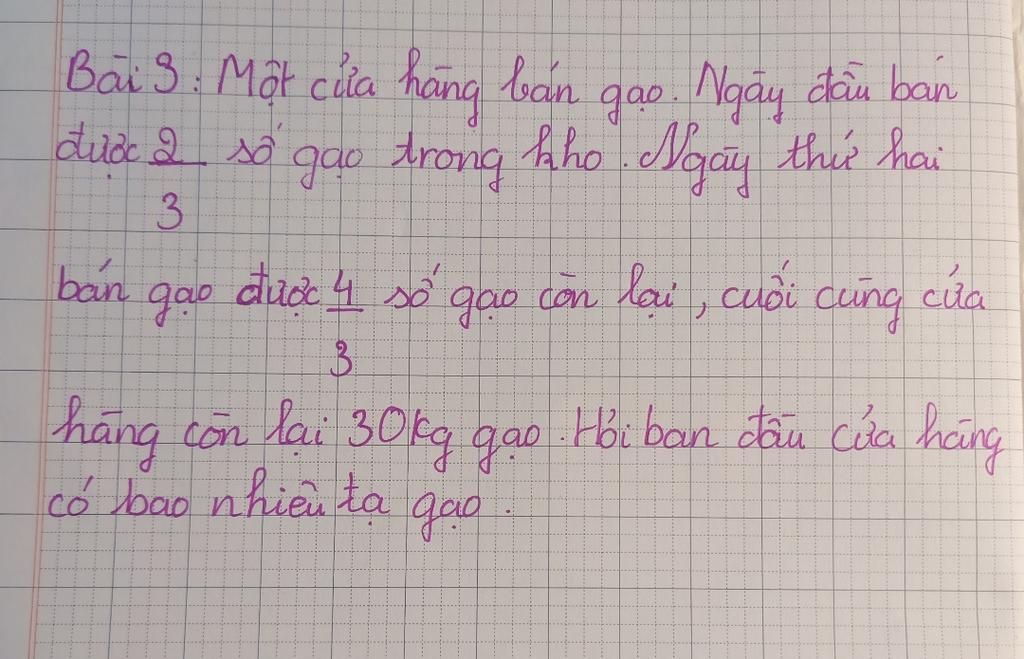 Bài 3: Một cửa hàng bán gạo. Ngày đầu bán
được 2/3 số gạo trong kho. Ngày thứ hai
bán gạo được 4/3 số gạo còn lại, cuối cùng cửa
hàng còn lại 30kg gạo. Hỏi ban đầu cửa hàng
có bao nhiêu tạ gạo.